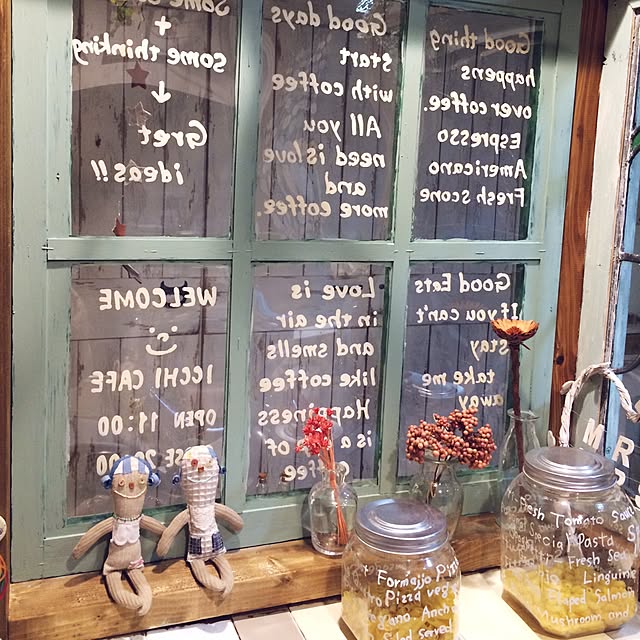 Some
+
some thinking
↓
Gret
ideas!!
Good days
start
with coffee
All you
need is love
and
more coffee.
Good thing
happens
over coffee.
Espresso
Americano
Fresh scone
WELCOME
ICCHI CAFE
OPEN 11:00
Love is
in the air
and smells
like coffee
Happiness
is a
of
Good Eats
If you can't
stay
take me
away
Pizza
Salad Served
Tomato
Pasta
Fresh
Linguine
Salmon
Mushroom and